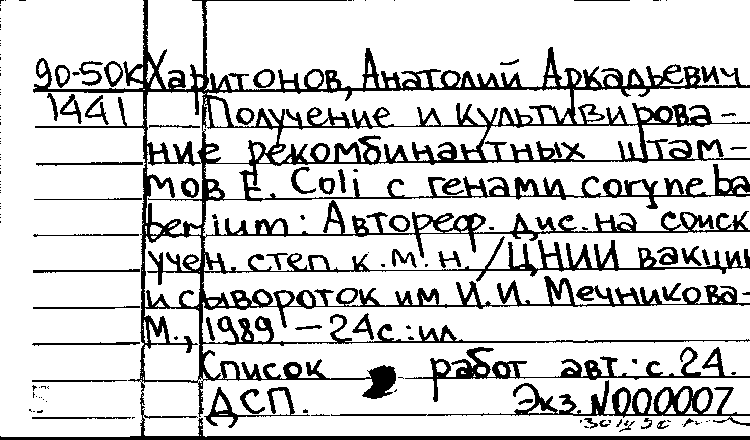 90-50К Харитонов, Анатолий Аркадьевич
1441 Получение и культивирова-
ние рекомбинантных штам-
мов E. Coli с генами coryneba
berium: Автореф. дис. на соиск
учен. степ. к.м.н. / ЦНИИ вакцин
и сывороток им И.И. Мечникова-
М., 1989. - 24с.: ил
Список работ авт.: с.24.
ДСП. Экз. N000007